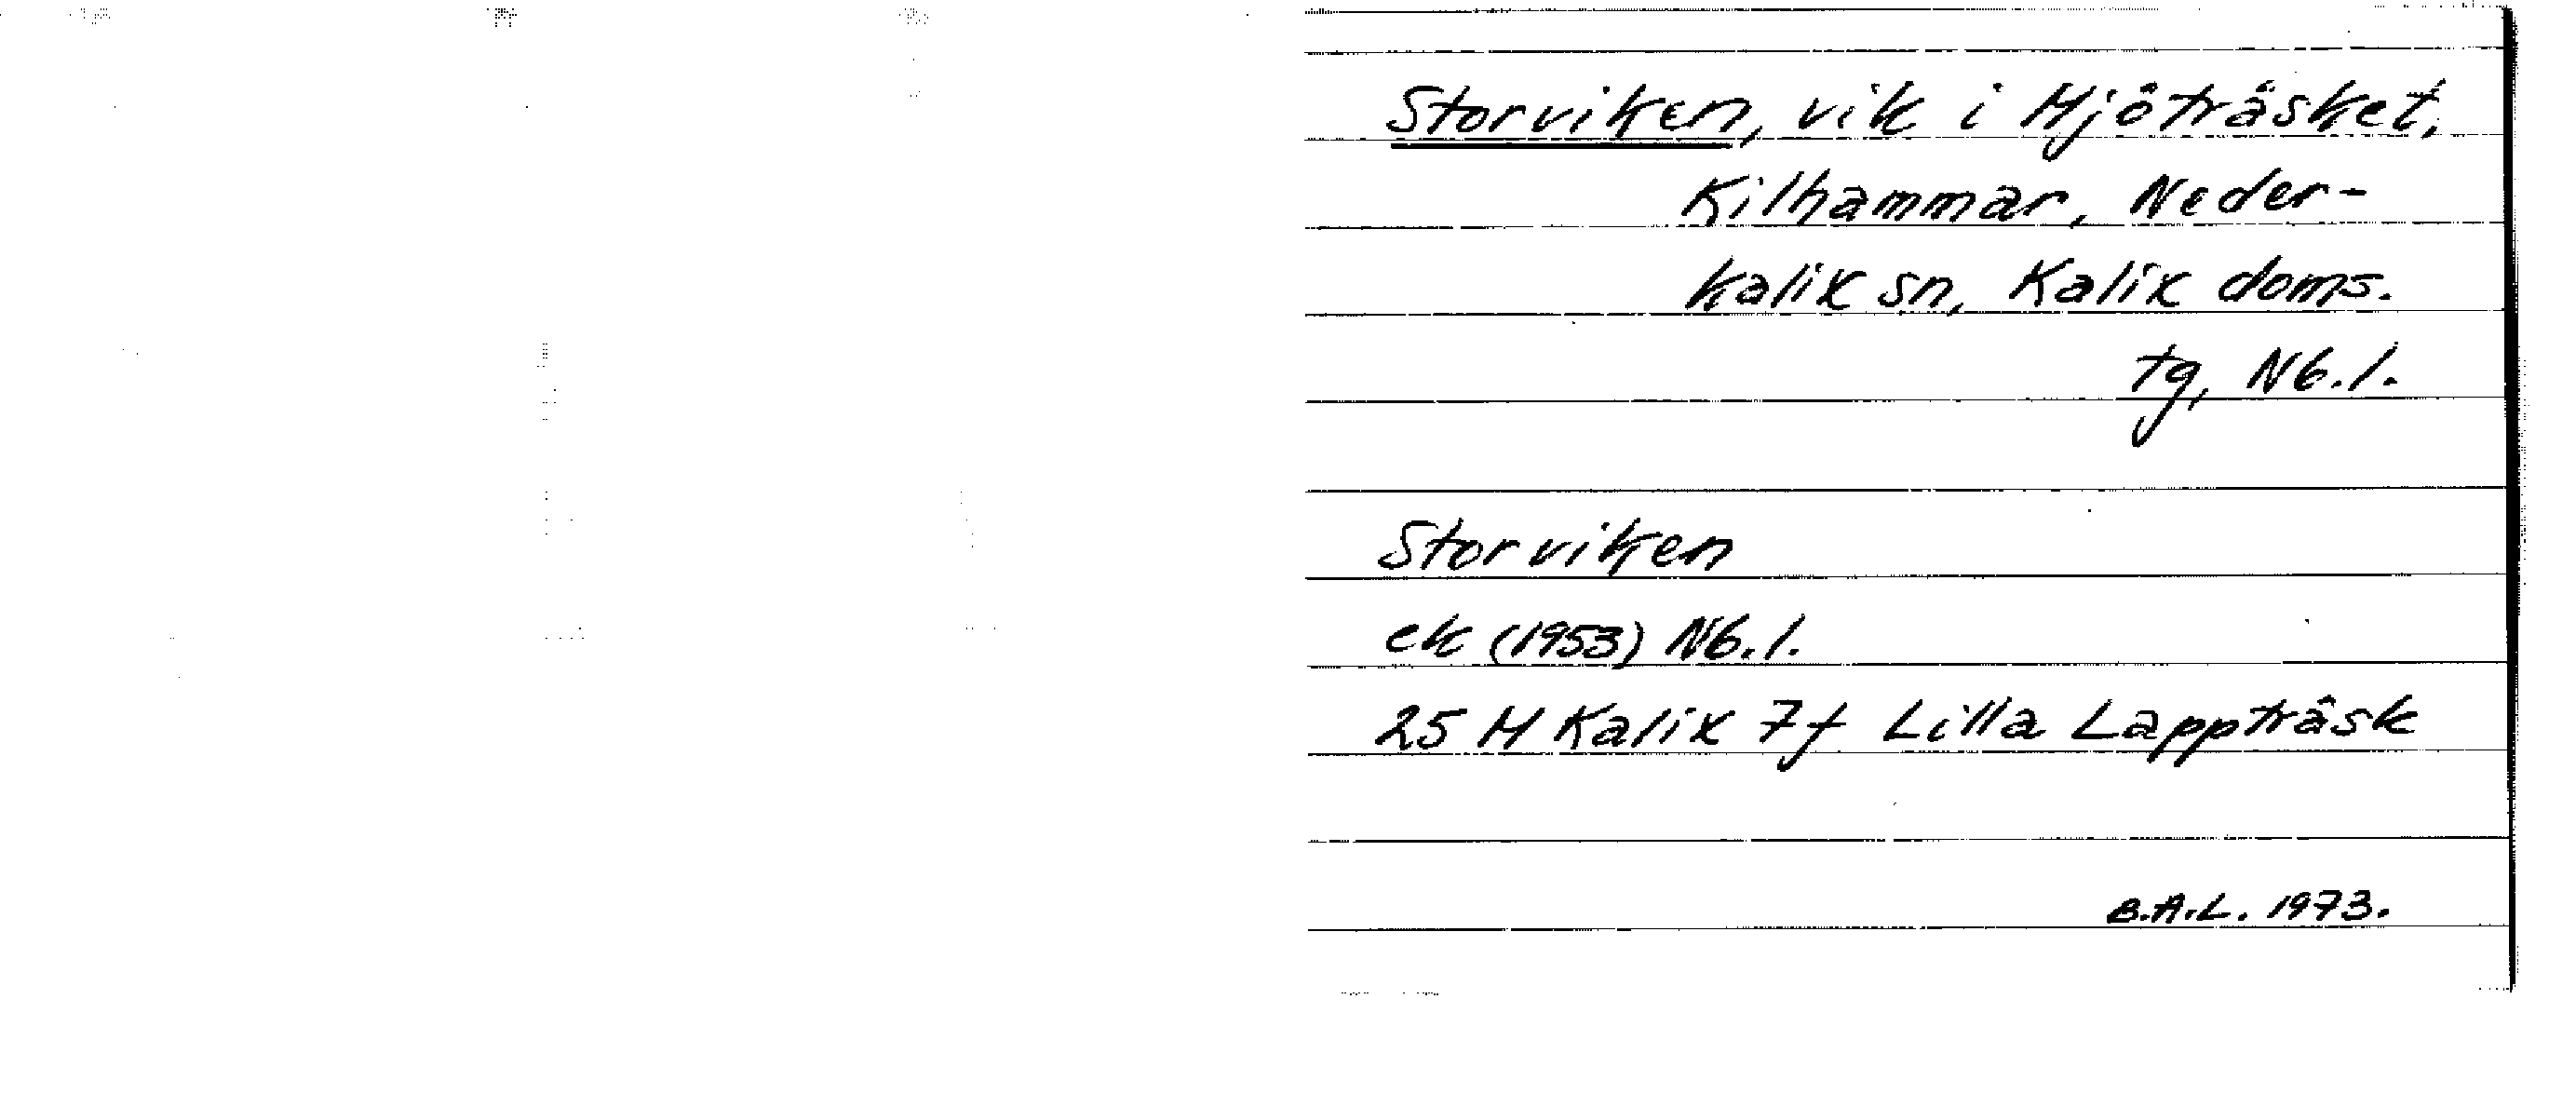 Storviken, vik i Mjöträsket,
Kilhammar, Neder-
kalix sn, Kalix doms.
tg, Nb.l.
Storviken
ek (1953) Nb.l.
25 M Kalix 7f Lilla Lappträsk
B.A.L. 1973.